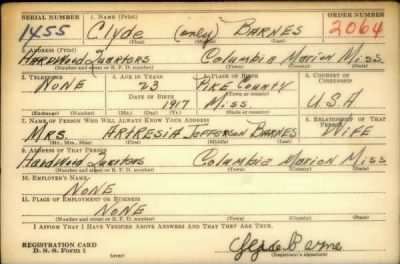 SERIAL NUMBER 1. NAME (Print) ORDER NUMBER
1455 Clyde (only) BARNES 2064
(First) (Middle) (Last)
2. ADDRESS (Print)
HARDWOOD QUARTORS Columbia Marion Miss
(Number and street or R. F. D. number) (Town) (County) (State)
3. TELEPHONE 4. AGE IN YEARS 5. PLACE OF BIRTH 6. COUNTRY OF CITIZENSHIP
NONE 23 PIKE COUNTY
(Town or county)
DATE OF BIRTH
1917 Miss. U.S.A
(Exchange) (Number) (Mo.) (Day) (Yr.) (State or country)
7. NAME OF PERSON WHO WILL ALWAYS KNOW YOUR ADDRESS 8. RELATIONSHIP OF THAT PERSON
MRS. ARTRESIA JEFFERSON BARNES WIFE
(Mr., Mrs., Miss) (First) (Middle) (Last)
9. ADDRESS OF THAT PERSON
HARDWOOD QUARTORS Columbia Marion Miss
(Number and street or R. F. D. number) (Town) (County) (State)
10. EMPLOYER'S NAME
NONE
11. PLACE OF EMPLOYMENT OR BUSINESS
NONE
(Number and street or R. F. D. number) (Town) (County) (State)
I AFFIRM THAT I HAVE VERIFIED ABOVE ANSWERS AND THAT THEY ARE TRUE.
REGISTRATION CARD
D. S. S. Form 1 (over) Clyde Barne
(Registrant's signature)